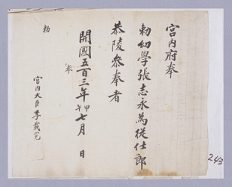 宮內府奉
勅幼學張志永為從仕郎
恭陵參奉者
開國五百三年甲午七月 日
勅
宮內大臣李載冕
243